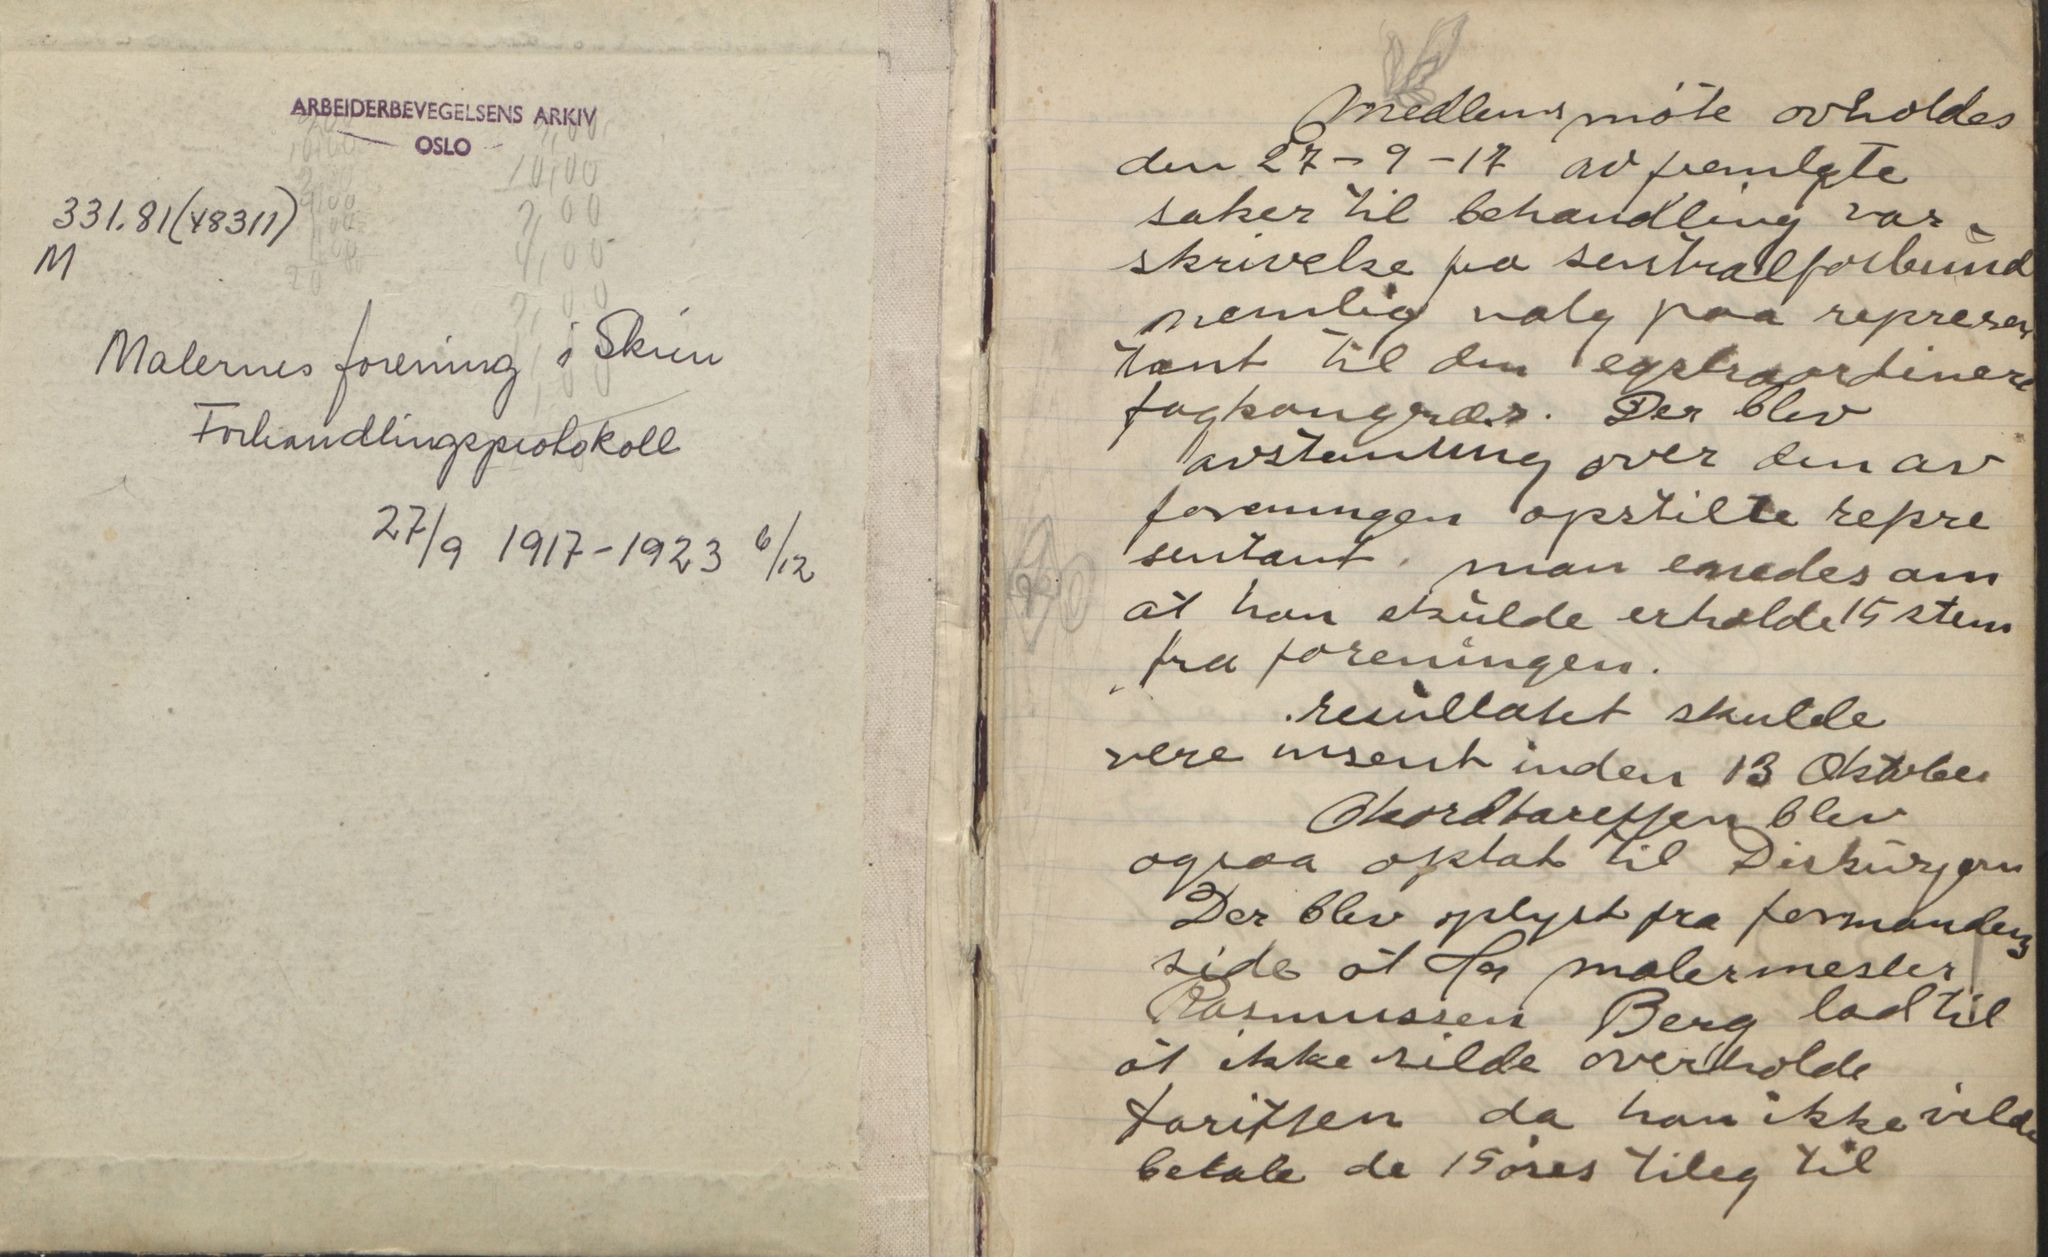 ARBEIDERBEVEGELSENS ARKIV
OSLO
331.81(48311)
M
Malernes forening i Skien
Forhandlingsprotokoll
27/9 1917-1923 6/12
Medlemsmöte avholdes
den 27-9-17 av fremlgte
saker til behandling var
skrivelse fra sentralforbund
nemlig valg paa represen
tant til den
fagkongræs. Der blev
avstemning over den av
foreningen opstilte repre
sentant. man enedes om
at han skulde erholde 15 stem
fra foreningen.
resultatet skulde
vere insent inden 13 Oktober
Akordtareffen blev
ogsaa optat til Diskusjon
Der blev oplyst fra formandens
side at Hr malermester
Rasmussen Berg lod til
at ikke vilde overholde
tariffen da han ikke vilde
betale de 15 øres tileg til